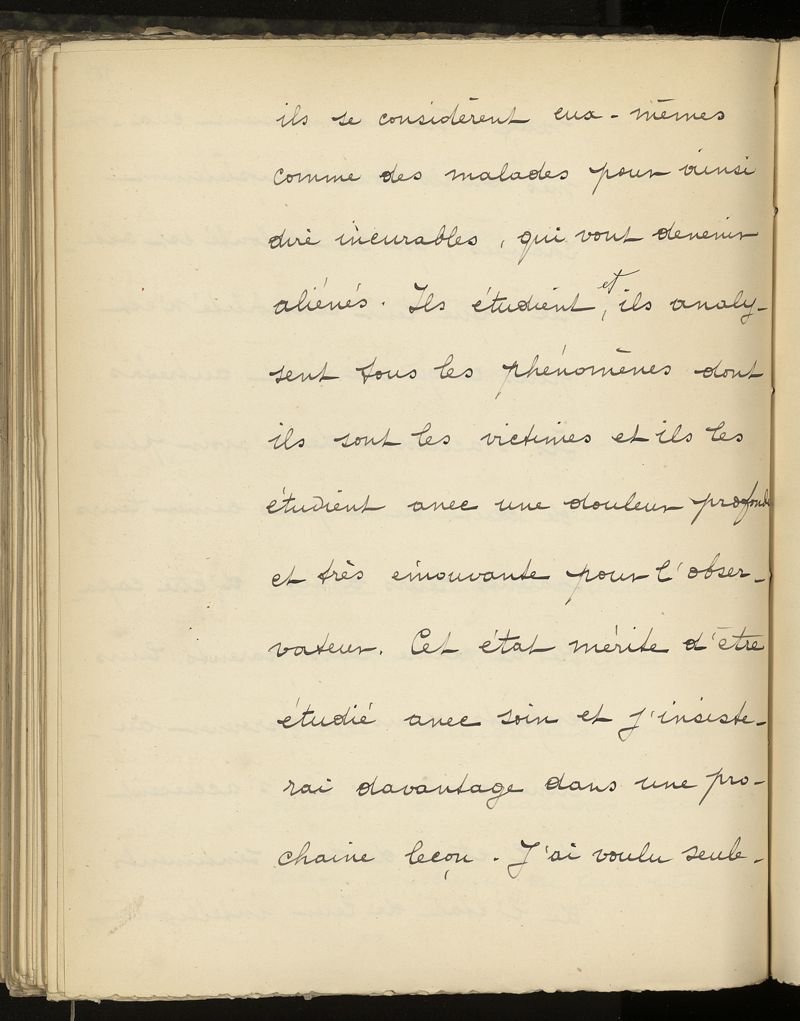 ils se considèrent eux-mêmes
comme des malades pour ainsi
dire incurables, qui vont devenir
aliénés. Ils étudient, et ils analy-
sent tous les phénomènes dont
ils sont les victimes et ils les
étudient avec une douleur profonde
et très émouvante pour l'obser-
vateur. Cet état mérite d'être
étudié avec soin et j'insiste-
rai davantage dans une pro-
chaine leçon. J'ai voulu seule-